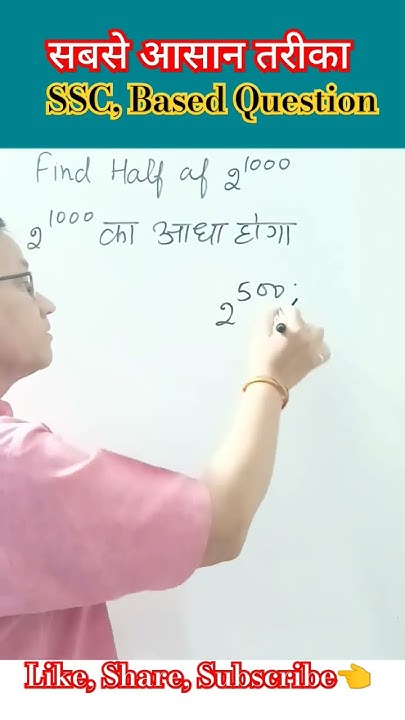 सबसे आसान तरीका
SSC, Based Question
Find Half of 2^1000
2^1000 का आधा होगा
2^500;
Like, Share, Subscribe👈